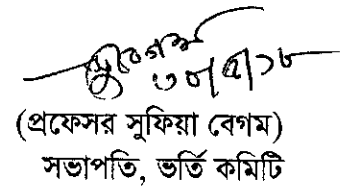 (প্রফেসর সুফিয়া বেগম)
সভাপতি, ভর্তি কমিটি